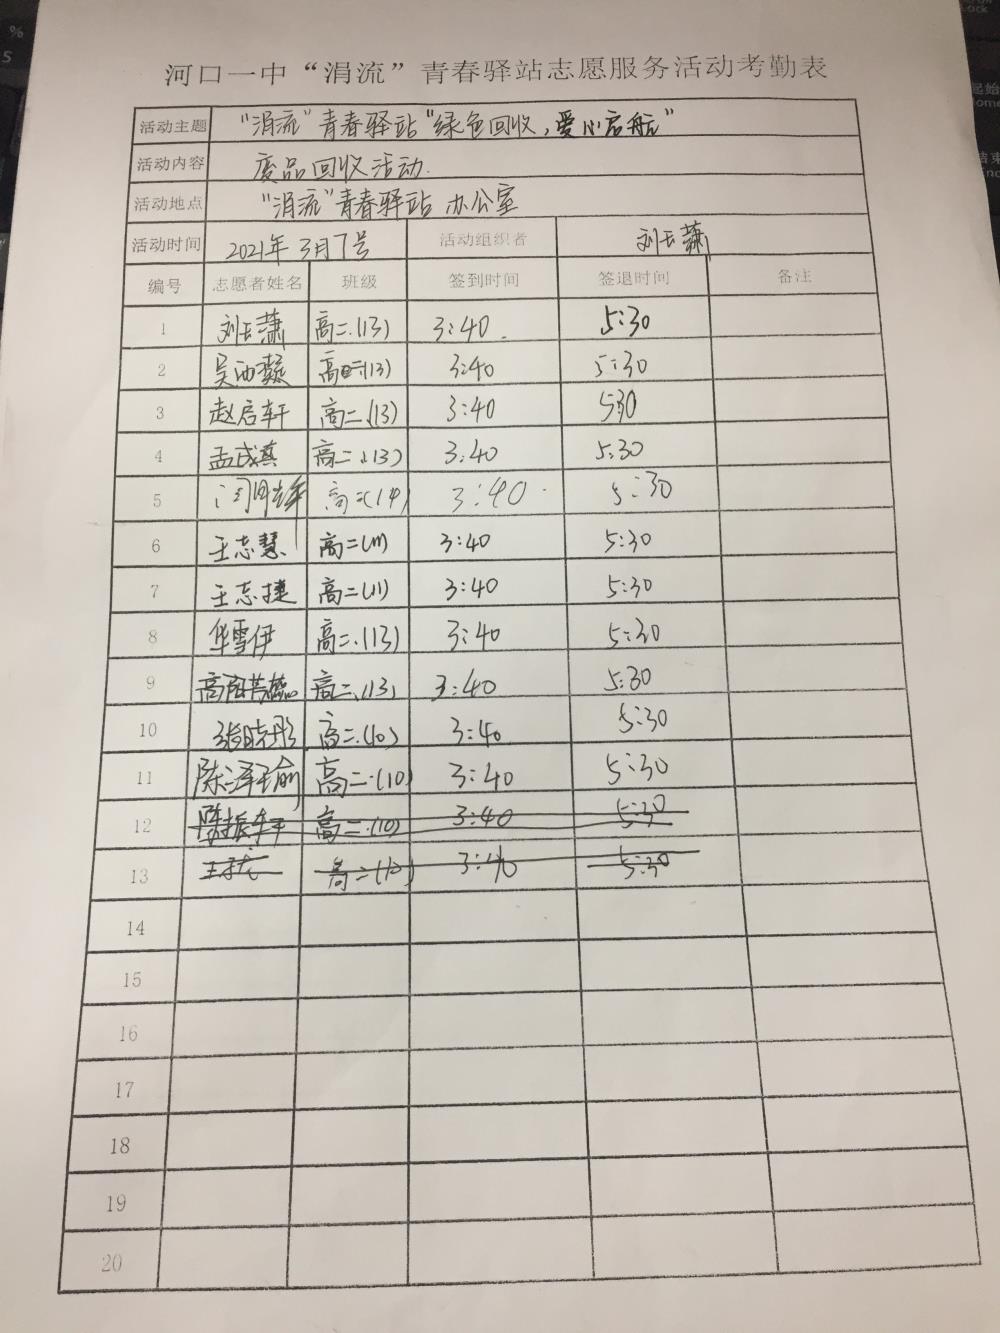 河口一中“涓流”青春驿站志愿服务活动考勤表
活动主题 “涓流”青春驿站“绿色回收,爱心启航”
活动内容 废品回收活动.
活动地点 “涓流”青春驿站 办公室
活动时间 2021年3月7号 活动组织者 刘玉萧
编号 志愿者姓名 班级 签到时间 签退时间 备注
1 刘玉萧 高二.(13) 3:40 5:30
2 吴西燕 高二(13) 3:40 5:30
3 赵启轩 高二.(13) 3:40 5:30
4 孟成真 高二.(13) 3:40 5:30
5 高二(14) 3:40 5:30
6 王志慧 高二(11) 3:40 5:30
7 王志捷 高二(11) 3:40 5:30
8 华雪伊 高二.(13) 3:40 5:30
9 高二.(13) 3:40 5:30
10 张晓彤 高二.(10) 3:40 5:30
11 陈泽瑜 高二.(10) 3:40 5:30
12 陈振 高二.(10) 3:40 5:30
13 高二(10) 3:40 5:30
14
15
16
17
18
19
20